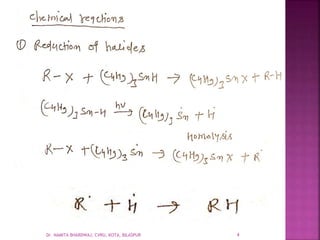 Chemical reactions
① Reduction of halides
R-X + (C4H9)3SnH → (C4H9)3SnX + R-H
(C4H9)3Sn-H hν→ (C4H9)3Sṅ + Ḣ
Homolysis
R-X + (C4H9)3Sṅ → (C4H9)3SnX + Ṙ
Ṙ + Ḣ → RH
Dr. MAMTA BHARDWAJ, CVRU, KOTA, BILASPUR 8